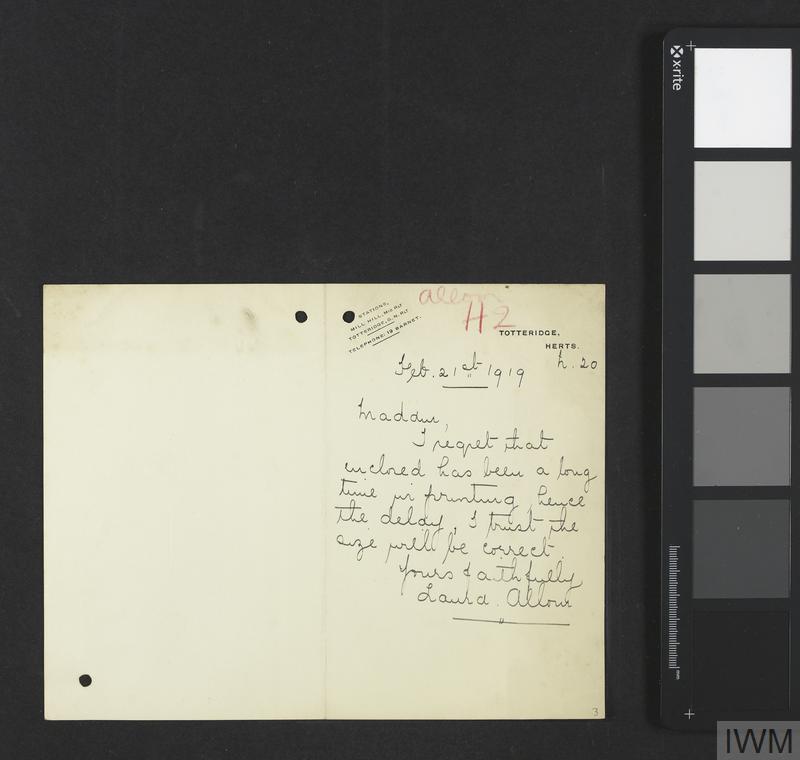 Allom
H2
STATIONS,
MILL HILL, MID RLY
TOTTERIDGE, G.N. RLY
TELEPHONE: 19 BARNET.
TOTTERIDGE,
HERTS.
h. 20
Feb. 21st 1919
Maddm,
I regret that
enclosed has been a long
time in printing, hence
the delay, I trust the
size will be correct.
Yours faithfully
Laura. Allom
3
x-rite
mm
IWM